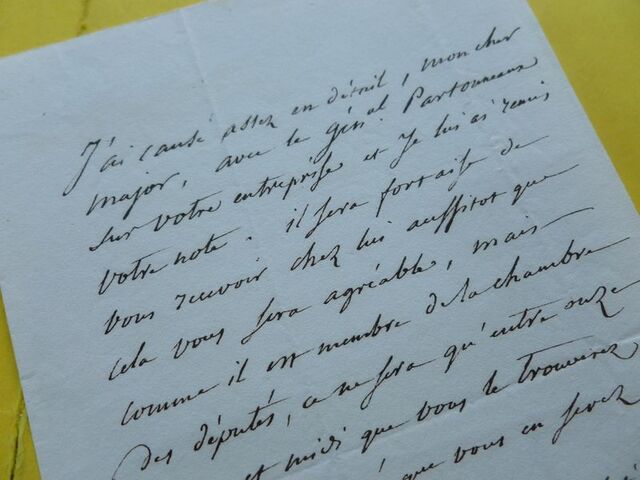 J'ai causé assez en détail, mon cher
major, avec le gén.al Partouneaux
sur votre entreprise et je lui ai remis
votre note. il sera fort aise de
vous recevoir chez lui aussitot que
cela vous sera agréable, mais
comme il est membre de la chambre
des députés, ce ne sera qu'entre onze
et midi que vous le trouverez
que vous en serez